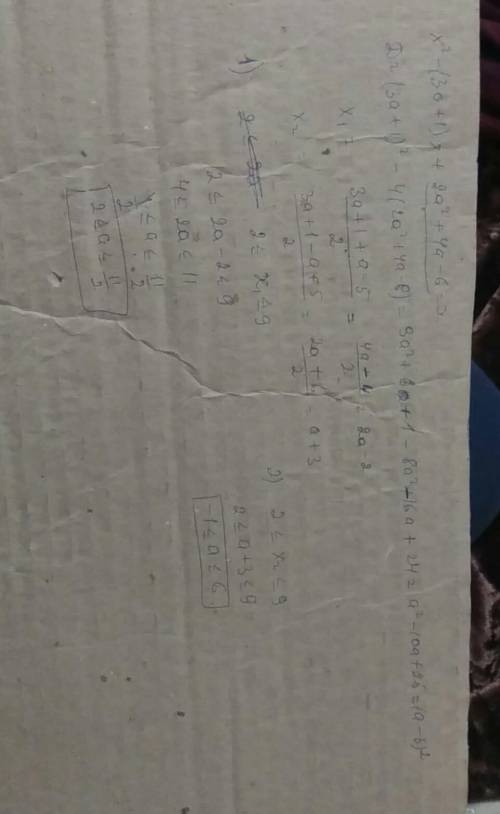 x² - (3a+1)x + 2a² + 4a - 6 =0
D = (3a+1)² - 4(2a² + 4a - 6) = 9a² + 6a + 1 - 8a² - 16a + 24 = a² - 10a + 25 = (a-5)²
x₁ = (3a+1+a-5)/2 = (4a-4)/2 = 2a-2
x₂ = (3a+1-a+5)/2 = (2a+6)/2 = a+3
1) 2 ≤ x₁ ≤ 9
2 ≤ 2a-2 ≤ 9
4 ≤ 2a ≤ 11
4/2 ≤ a ≤ 11/2
2 ≤ a ≤ 11/2
2) 2 ≤ x₂ ≤ 9
2 ≤ a+3 ≤ 9
-1 ≤ a ≤ 6